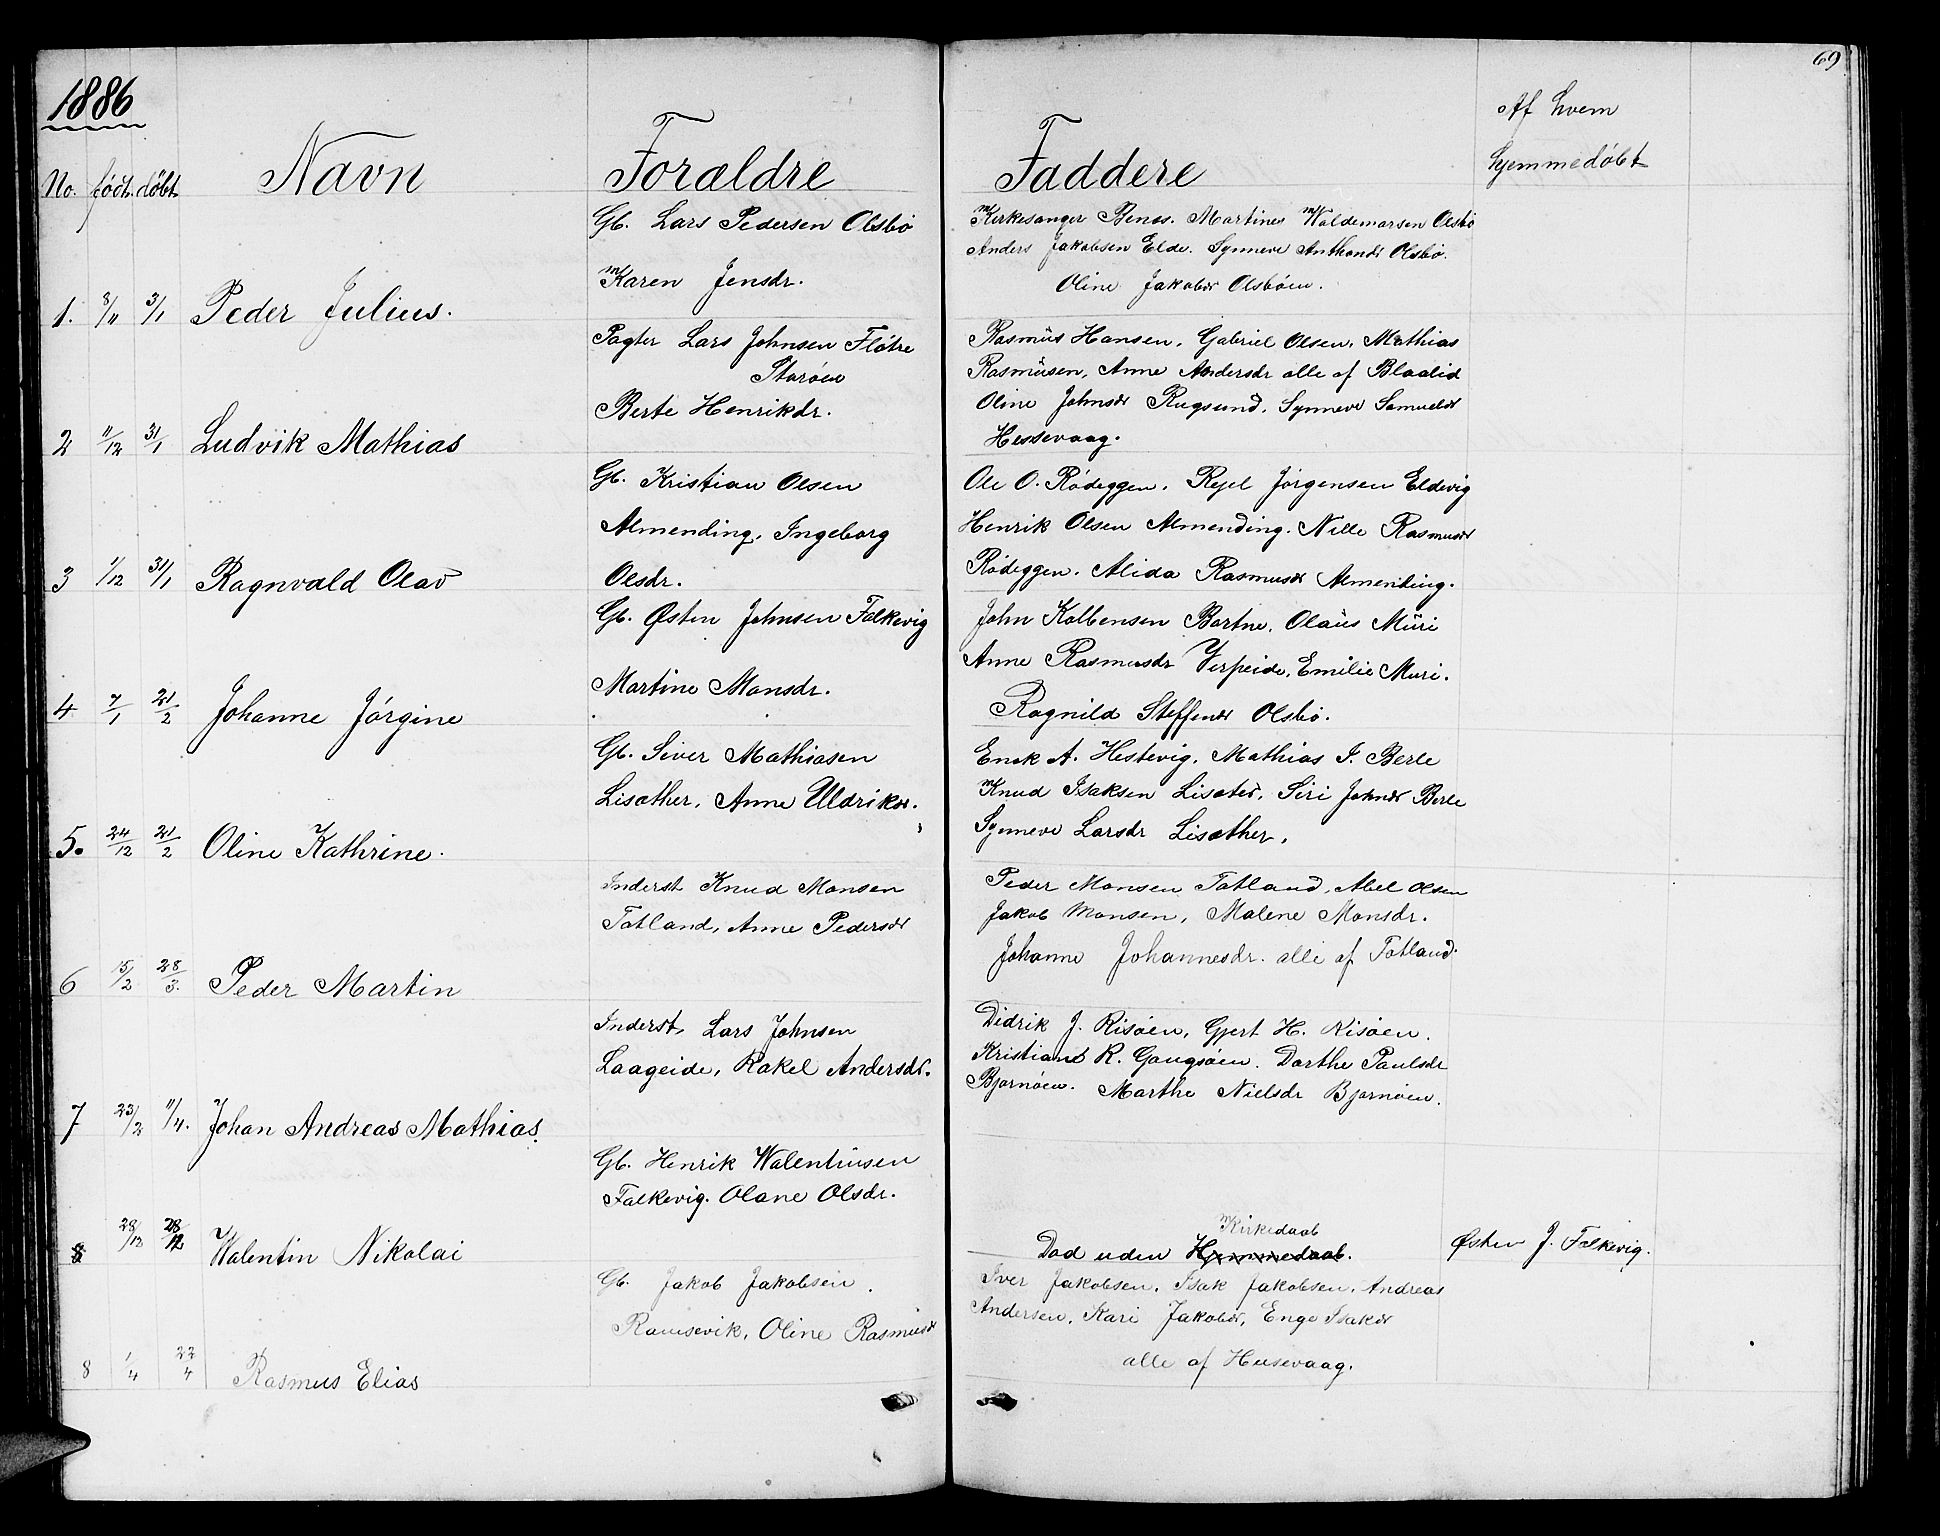 69
1886
No. født. döbt. Navn Forældre Faddere Af hvem hjemmedöbt
Gb. Lars Pedersen Olsbö
Karen Jensdr.
Kirkesanger Benes. Martines Waldemarsen Olsbö
Anders Jakobsen Elde. Synneve Anthondr Olsbö.
Oline Jakobdr Olsböen.
1. 8/11 3/1 Peder Julius.
Pagter Lars Johnsen Flötre
Staröen
Berte Henrikdr.
Rasmus Hansen, Gabriel Olsen, Mathias
Rasmusen, Anne Andersdr alle af Blaalid
Oline Johnsdr Rugsund, Synneve Samueldr
Hessevaag.
2 11/12 31/1 Ludvik Mathias
Gb. Kristian Olsen
Almending, Ingeborg
Olsdr.
Ole O. Rödeggen, Rejel Jörgensen Eldevig
Henrik Olsen Almending. Nille Rasmusdr
Rödeggen. Alida Rasmusdr Almending.
3 1/12 31/1 Ragnvald Olav
Gb. Østen Johnsen Falkevig
Martine Monsdr.
John Kolbensen Bortne, Olaus Muri
Anne Rasmusdr Verpeide, Emilie Muri.
Ragnild Steffendr Olsbö.
4 7/1 21/2 Johanne Jörgine
Gb. Siver Mathiasen
Lisæther, Anne Uldrikdr.
Enok A. Hestevig. Mathias I. Berle
Knud Isaksen Lisæter, Siri Johndr Berle
Synneve Larsdr Lisæther.
5. 24/12 21/2 Oline Kathrine.
Inderst Knud Monsen
Totland, Anne Pedersdr
Peder Monsen Totland, Abel Olsen
Jakob Monsen, Malene Monsdr.
Johanne Johannesdr. alle af Totland.
6 15/2 28/3. Peder Martin
Inderst. Lars Johnsen
Laageide, Rakel Andersdr.
Didrik J. Risöen, Gjert H. Risöen.
Kristian R. Gangsöen. Dorthe Paulsdr
Bjornöen. Marthe Nielsdr Bjornöen.
7 23/2 11/4. Johan Andreas Mathias.
Gb. Henrik Walentinsen
Falkevig. Olane Olsdr.
Kirkedaab
Död uden Hjemmedaab.
Østen J. Falkevig.
8 28/12 28/12 Walentin Nikolai
Gb. Jakob Jakobsen.
Ramsevik, Oline Rasmusdr
Iver Jakobsen. Isak Jakobsen. Andreas
Andersen, Kari Jakobdr, Enge Isakdr
alle af Husevaag.
8 1/4 22/4 Rasmus Elias